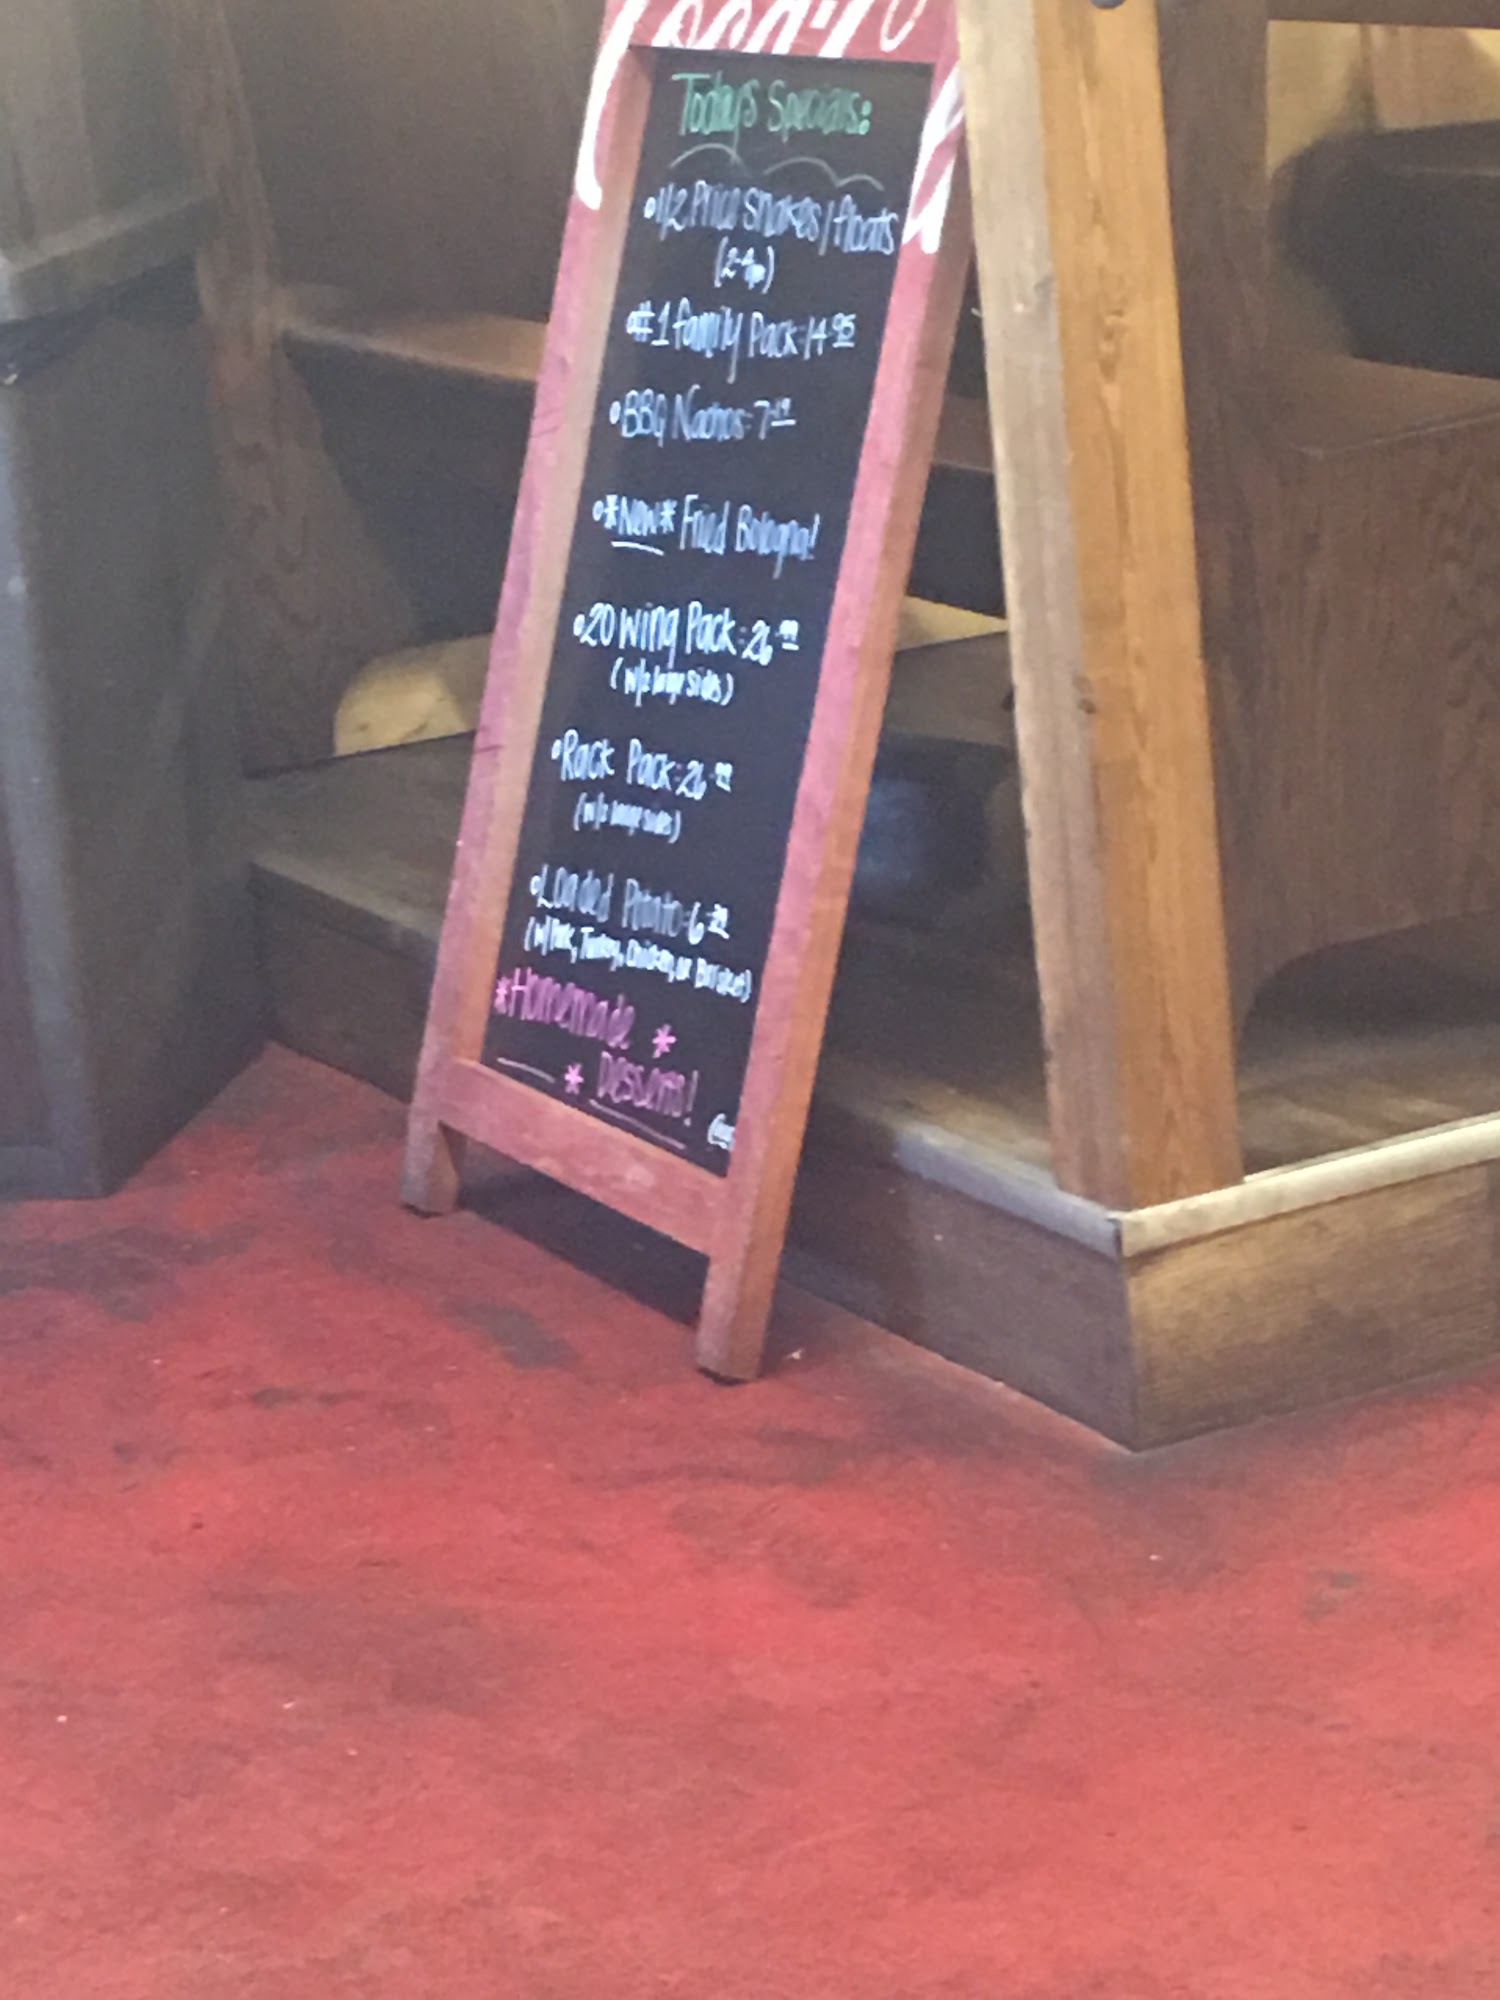 Todays Specials:
•1/2 Price Shakes/floats
(2-4pm)
•#1 family Pack: 14.95
•BBQ Nachos: 7
•*New* Fried Bologna!
•20 Wing Pack: 26.99
(w/2 large sides)
•Rack Pack: 26.99
(w/2 large sides)
•Loaded Potato: 6
(w/Pork, Turkey, Chicken, or Brisket)
*Homemade *
* Desserts!